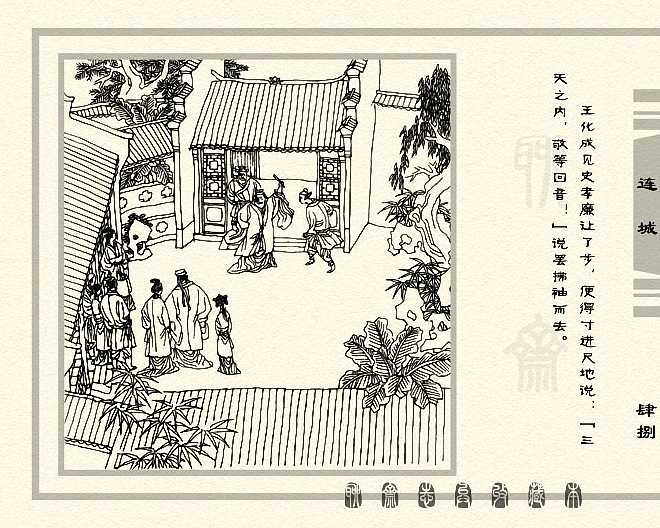 王化成见史孝廉让了步，便得寸进尺地说：“三
天之内，敬等回音！”说罢拂袖而去。
连城
肆捌
聊斋志异收藏本